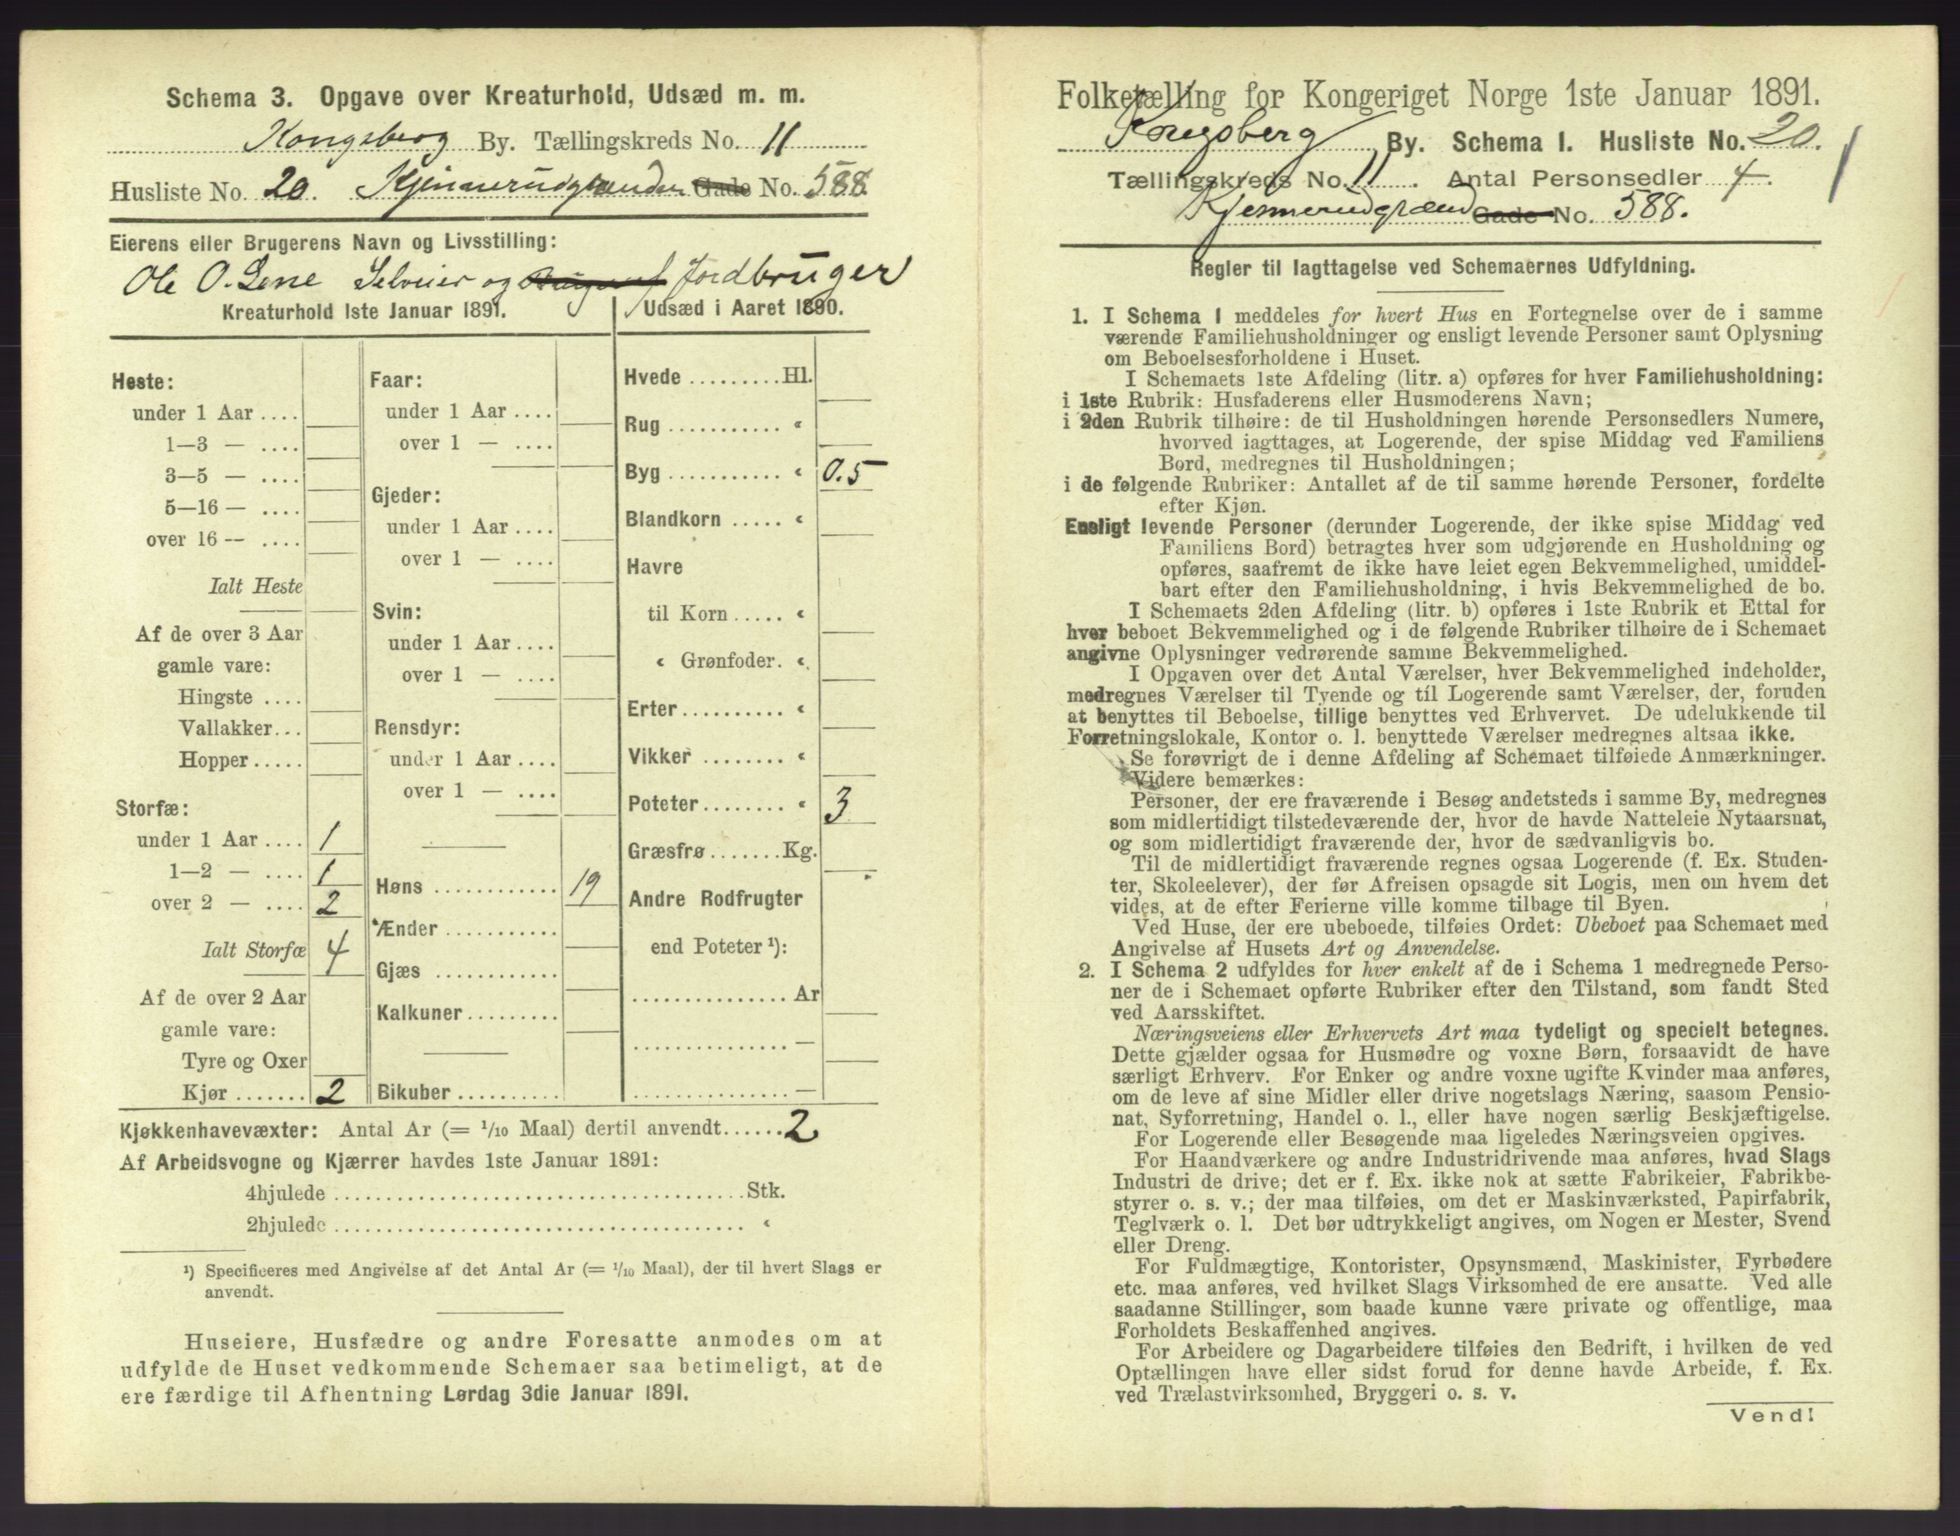 Schema 3. Opgave over Kreaturhold, Udsæd m. m.
Kongsberg By. Tællingskreds No. 11
Husliste No. 20. Kjennerudgrænden Gade No. 588.
Eierens eller Brugerens Navn og Livsstilling:
Ole O. Lene Selveier og Jordbruger
Kreaturhold 1ste Januar 1891.
Heste:
under 1 Aar ....
1—3 — ....
3—5 — ....
5—16 — ....
over 16 — ....
Ialt Heste
Af de over 3 Aar
gamle vare:
Hingste ....
Vallakker...
Hopper .....
Storfæ:
under 1 Aar .... 1
1—2 — .... 1
over 2 — .... 2
Ialt Storfæ 4
Af de over 2 Aar
gamle vare:
Tyre og Oxer
Kjør ....... 2
Faar:
under 1 Aar ....
over 1 — ....
Gjeder:
under 1 Aar ....
over 1 — ....
Svin:
under 1 Aar ....
over 1 — ....
Rensdyr:
under 1 Aar ....
over 1 — ....
Høns ............ 19
Ænder ...........
Gjæs ............
Kalkuner.........
Bikuber ..........
Udsæd i Aaret 1890.
Hvede .........Hl.
Rug ........... «
Byg ........... « 0.5
Blandkorn ..... «
Havre
til Korn ..... «
« Grønfoder. «
Erter.......... «
Vikker ........ «
Poteter........ « 3
Græsfrø .......Kg.
Andre Rodfrugter
end Poteter ¹):
............... Ar
............... —
............... —
Kjøkkenhavevæxter: Antal Ar (= 1/10 Maal) dertil anvendt...... 2
Af Arbeidsvogne og Kjærrer havdes 1ste Januar 1891:
4hjulede ....................................... Stk.
2hjulede ....................................... «
¹) Specificeres med Angivelse af det Antal Ar (= 1/10 Maal), der til hvert Slags er
anvendt.
Huseiere, Husfædre og andre Foresatte anmodes om at
udfylde de Huset vedkommende Schemaer saa betimeligt, at de
ere færdige til Afhentning Lørdag 3die Januar 1891.
Folketælling for Kongeriget Norge 1ste Januar 1891.
Kongsberg By. Schema 1. Husliste No. 20.
Tællingskreds No. 11. Antal Personsedler 4.
Kjennerudgrænd Gade No. 588.
Regler til Iagttagelse ved Schemaernes Udfyldning.
1. I Schema 1 meddeles for hvert Hus en Fortegnelse over de i samme
værende Familiehusholdninger og ensligt levende Personer samt Oplysning
om Beboelsesforholdene i Huset.
I Schemaets 1ste Afdeling (litr. a) opføres for hver Familiehusholdning:
i 1ste Rubrik: Husfaderens eller Husmoderens Navn;
i 2den Rubrik tilhøire: de til Husholdningen hørende Personsedlers Numere,
hvorved iagttages, at Logerende, der spise Middag ved Familiens
Bord, medregnes til Husholdningen;
i de følgende Rubriker: Antallet af de til samme hørende Personer, fordelte
efter Kjøn.
Ensligt levende Personer (derunder Logerende, der ikke spise Middag ved
Familiens Bord) betragtes hver som udgjørende en Husholdning og
opføres, saafremt de ikke have leiet egen Bekvemmelighed, umiddel-
bart efter den Familiehusholdning, i hvis Bekvemmelighed de bo.
I Schemaets 2den Afdeling (litr. b) opføres i 1ste Rubrik et Ettal for
hver beboet Bekvemmelighed og i de følgende Rubriker tilhøire de i Schemaet
angivne Oplysninger vedrørende samme Bekvemmelighed.
I Opgaven over det Antal Værelser, hver Bekvemmelighed indeholder,
medregnes Værelser til Tyende og til Logerende samt Værelser, der, foruden
at benyttes til Beboelse, tillige benyttes ved Erhvervet. De udelukkende til
Forretningslokale, Kontor o. l. benyttede Værelser medregnes altsaa ikke.
Se forøvrigt de i denne Afdeling af Schemaet tilføiede Anmærkninger.
Videre bemærkes:
Personer, der ere fraværende i Besøg andetsteds i samme By, medregnes
som midlertidigt tilstedeværende der, hvor de havde Natteleie Nytaarsnat,
og som midlertidigt fraværende der, hvor de sædvanligvis bo.
Til de midlertidigt fraværende regnes ogsaa Logerende (f. Ex. Studen-
ter, Skoleelever), der før Afreisen opsagde sit Logis, men om hvem det
vides, at de efter Ferierne ville komme tilbage til Byen.
Ved Huse, der ere ubeboede, tilføies Ordet: Ubeboet paa Schemaet med
Angivelse af Husets Art og Anvendelse.
2. I Schema 2 udfyldes for hver enkelt af de i Schema 1 medregnede Perso-
ner de i Schemaet opførte Rubriker efter den Tilstand, som fandt Sted
ved Aarsskiftet.
Næringsveiens eller Erhvervets Art maa tydeligt og specielt betegnes.
Dette gjælder ogsaa for Husmødre og voxne Børn, forsaavidt de have
særligt Erhverv. For Enker og andre voxne ugifte Kvinder maa anføres,
om de leve af sine Midler eller drive nogetslags Næring, saasom Pensio-
nat, Syforretning, Handel o. l., eller have nogen særlig Beskjæftigelse.
For Logerende eller Besøgende maa ligeledes Næringsveien opgives.
For Haandværkere og andre Industridrivende maa anføres, hvad Slags
Industri de drive; det er f. Ex. ikke nok at sætte Fabrikeier, Fabrikbe-
styrer o. s. v.; der maa tilføies, om det er Maskinværksted, Papirfabrik,
Teglværk o. l. Det bør udtrykkeligt angives, om Nogen er Mester, Svend
eller Dreng.
For Fuldmægtige, Kontorister, Opsynsmænd, Maskinister, Fyrbødere
etc. maa anføres, ved hvilket Slags Virksomhed de ere ansatte. Ved alle
saadanne Stillinger, som baade kunne være private og offentlige, maa
Forholdets Beskaffenhed angives.
For Arbeidere og Dagarbeidere tilføies den Bedrift, i hvilken de ved
Optællingen have eller sidst forud for denne havde Arbeide, f. Ex.
ved Trælastvirksomhed, Bryggeri o. s. v.
Vend!